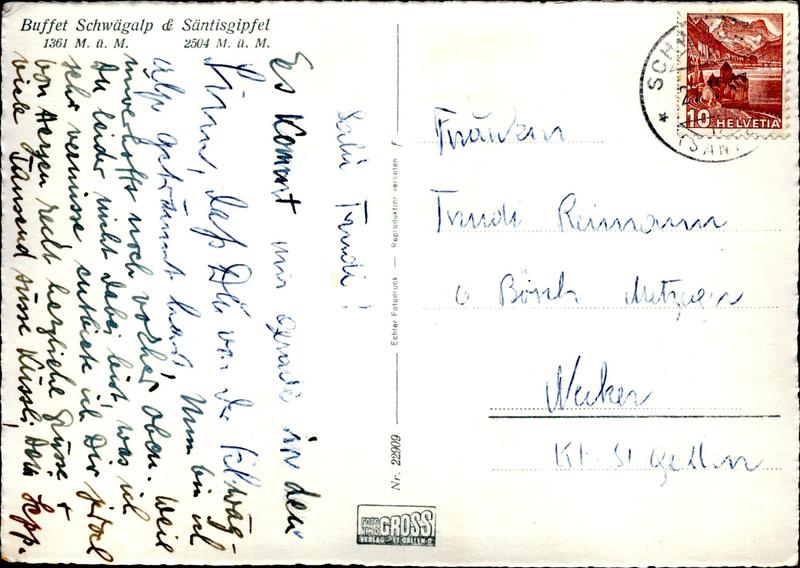 Buffet Schwägalp & Säntisgipfel
1361 M. ü. M. 2504 M. ü. M.
Salü Trudi!
Es kommt mir gerade in den
Sinn, daß Du von der Schwäg-
alp geträumt hast. Nun bin ich
unverhofft noch vorher oben. Weil
Du leider nicht dabei bist, was ich
sehr vermisse, entbiete ich Dir
von Herzen recht herzliche Grüsse +
viele Tausend süsse Küssli, Dein Sepp.
Nr. 22909 Echter Fotodruck — Reproduktion verboten
FOTO GROSS
VERLAG ST. GALLEN
SCHWÄGALP
(SÄNTIS)
10 HELVETIA
Fräulein
Trudi Reimann
Metzgerei
Necker
Kt. St. Gallen